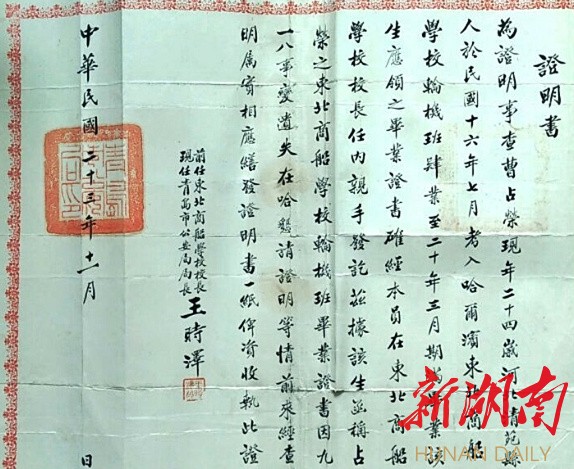 證明書
為證明事查曹占榮現年二十四歲河北清苑
人於民國十六年七月考入哈爾濱東北商船
學校輪機班肄業至二十年三月期滿畢業
生應領之畢業證書確經本員在東北商船
學校校長任內親手發訖茲據該生函稱占
榮之東北商船學校輪機班畢業證書因九
一八事變遺失在哈懇請證明等情前來經查
明属實相應繕發證明書一紙俾資收執此證
前任東北商船學校校長
現任青島市公安局局長
王時澤
中華民國二十三年十一月 日
新湖南
HUNAN DAILY